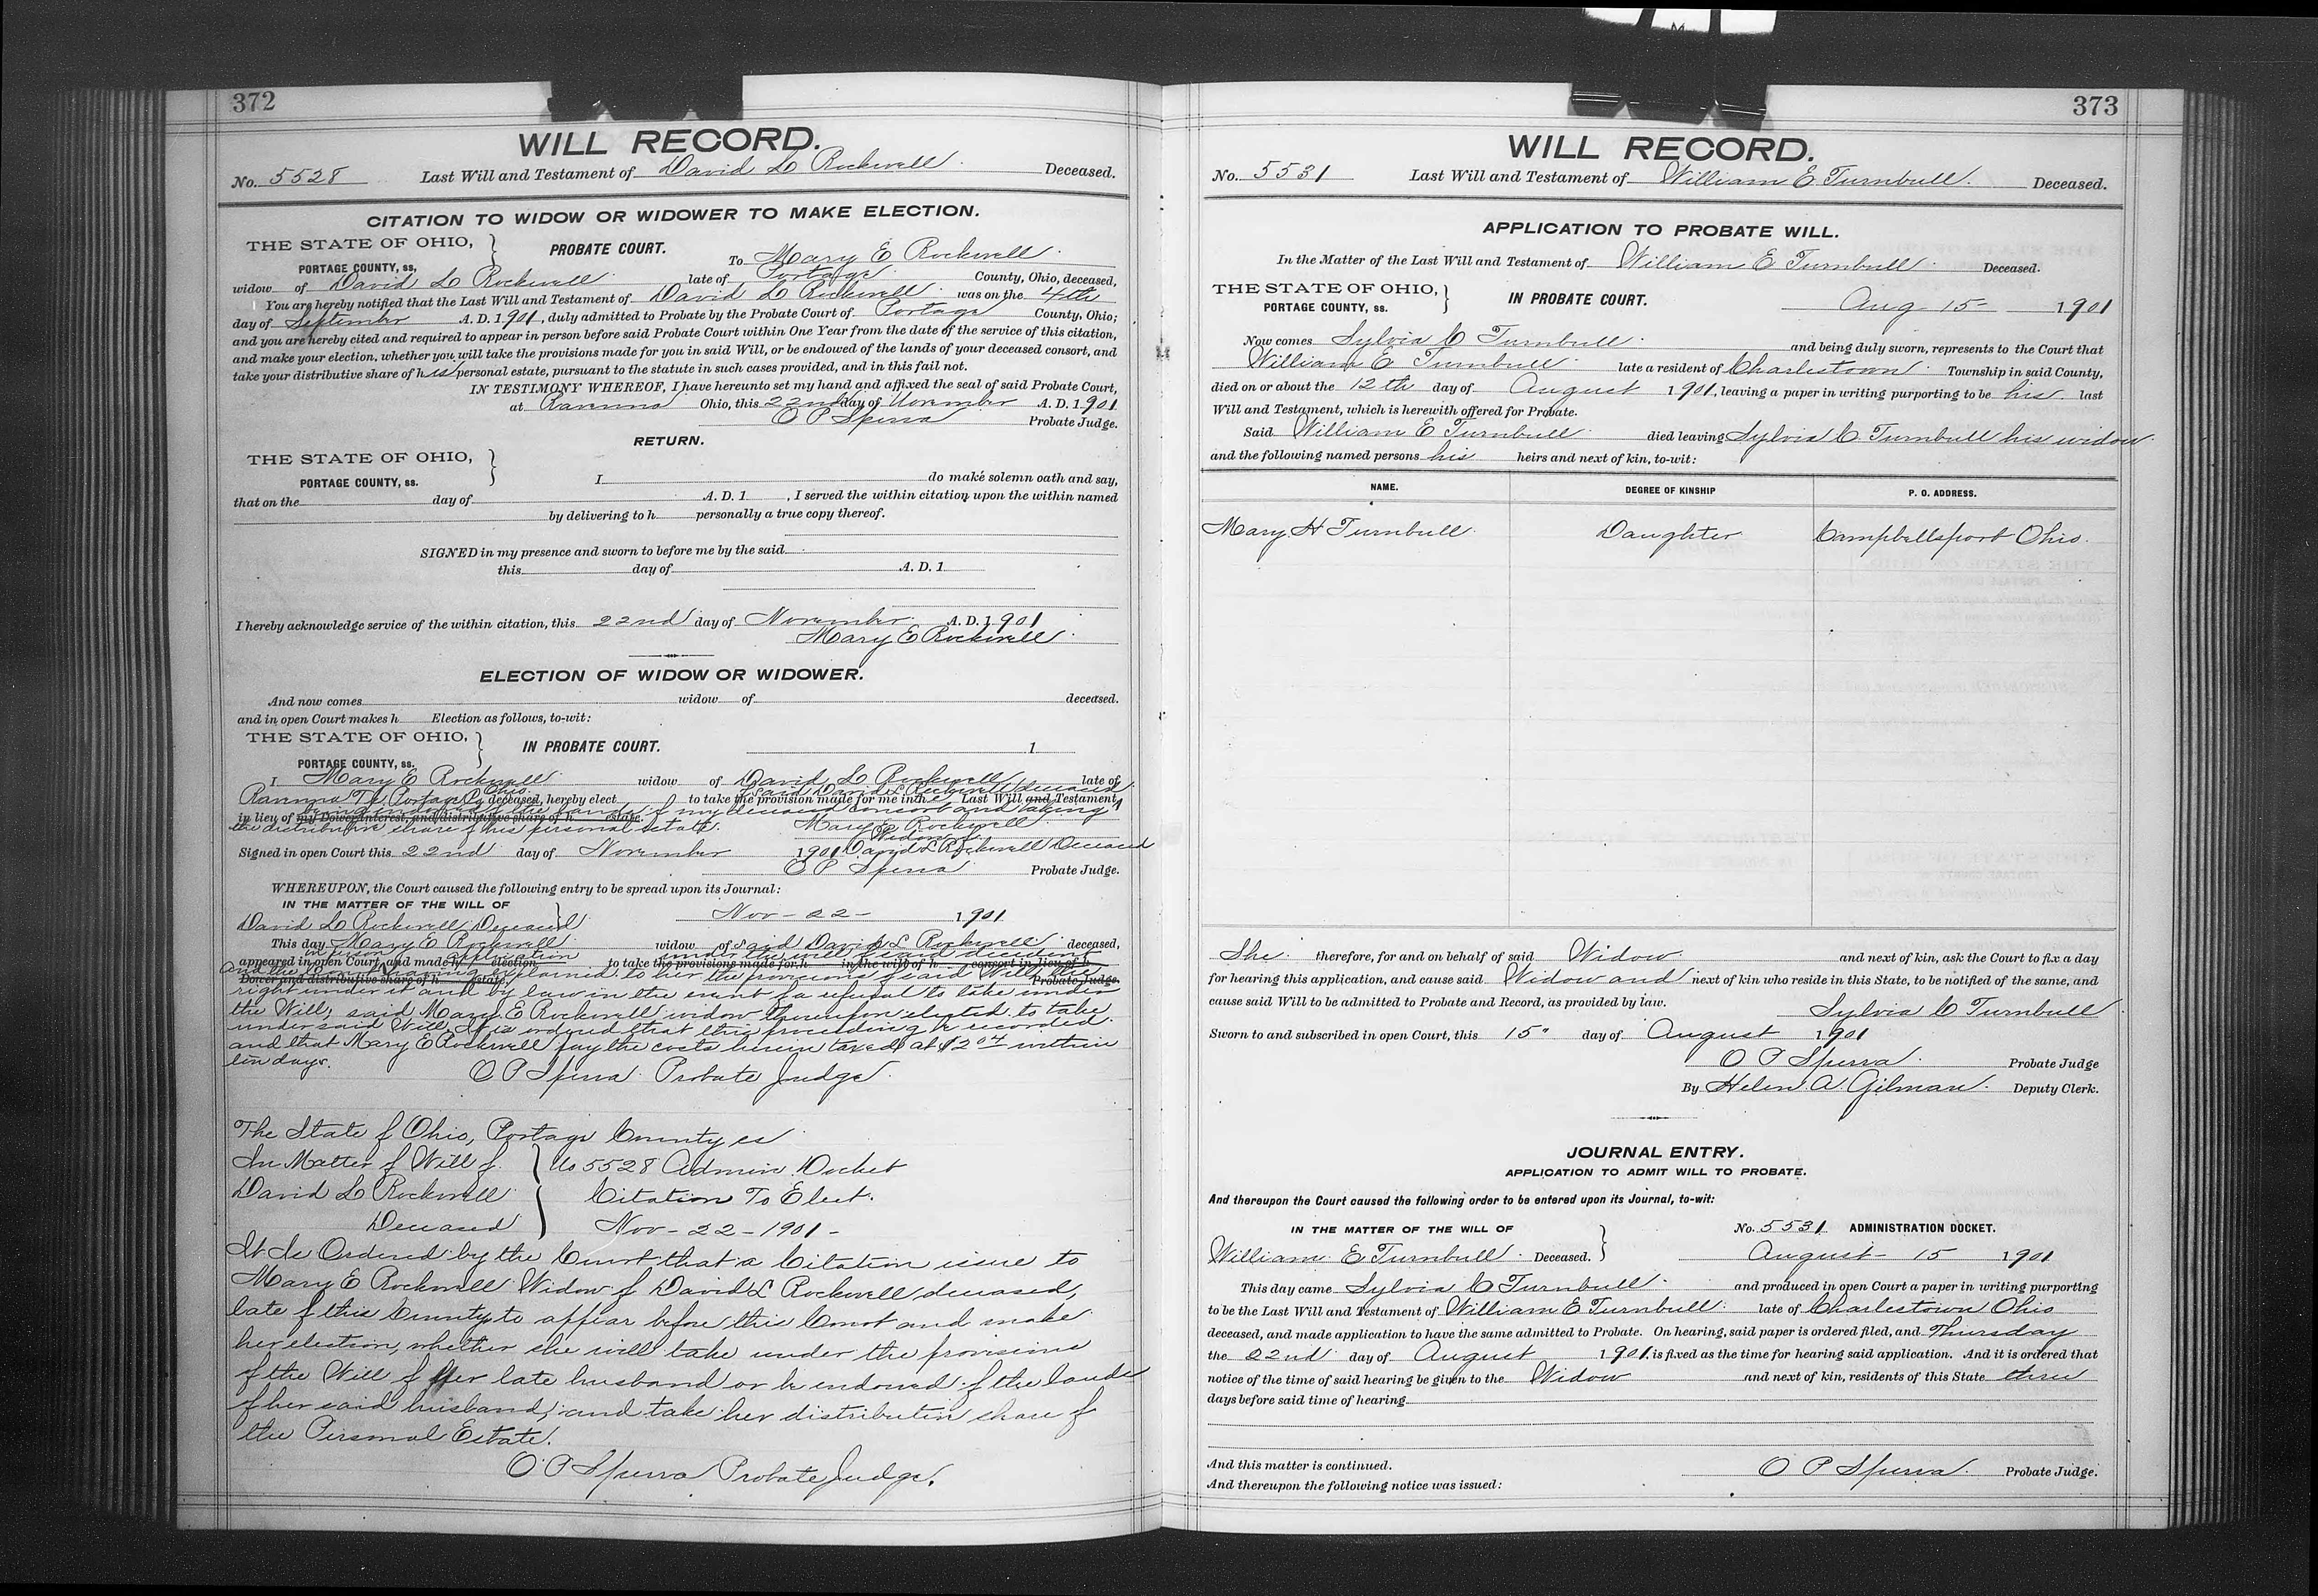 372
WILL RECORD.
No. 5528 Last Will and Testament of David L Rockwell Deceased.
CITATION TO WIDOW OR WIDOWER TO MAKE ELECTION.
THE STATE OF OHIO, PROBATE COURT.
PORTAGE COUNTY, ss. To Mary E Rockwell
widow of David L Rockwell late of Portage County, Ohio, deceased,
You are hereby notified that the Last Will and Testament of David L Rockwell was on the 4th
day of September A. D. 1901, duly admitted to Probate by the Probate Court of Portage County, Ohio;
and you are hereby cited and required to appear in person before said Probate Court within One Year from the date of the service of this citation,
and make your election, whether you will take the provisions made for you in said Will, or be endowed of the lands of your deceased consort, and
take your distributive share of his personal estate, pursuant to the statute in such cases provided, and in this fail not.
IN TESTIMONY WHEREOF, I have hereunto set my hand and affixed the seal of said Probate Court,
at Ravenna Ohio, this 22nd day of November A. D. 1901
O P Sperra Probate Judge.
RETURN.
THE STATE OF OHIO,
PORTAGE COUNTY, ss. I do make solemn oath and say,
that on the day of A. D. 1 , I served the within citation upon the within named
by delivering to h personally a true copy thereof.
SIGNED in my presence and sworn to before me by the said
this day of A. D. 1
I hereby acknowledge service of the within citation, this 22nd day of November A. D. 1901
Mary E Rockwell
ELECTION OF WIDOW OR WIDOWER.
And now comes widow of deceased.
and in open Court makes h Election as follows, to-wit:
THE STATE OF OHIO, IN PROBATE COURT. 1
PORTAGE COUNTY, ss.
I Mary E Rockwell widow of David L Rockwell late of
Ravenna Tp. Portage Co Ohio deceased, hereby elect to take the provision made for me in the Last Will and Testament, said David L Rockwell deceased
in lieu of my Dower interest, and distributive share of h estate. being endowed of the lands of my deceased consort and taking
the distributive share of his personal estate. Mary E Rockwell
Widow of
Signed in open Court this 22nd day of November 1901 David L Rockwell Deceased
O P Sperra Probate Judge.
WHEREUPON, the Court caused the following entry to be spread upon its Journal:
IN THE MATTER OF THE WILL OF
David L Rockwell Deceased Nov - 22 - 1901
This day Mary E Rockwell widow of said David L Rockwell deceased,
in person application under the will of said decedent
appeared in open Court, and made h election to take the provisions made for h in the will of h consort in lieu of h
And the Court having explained to her the provisions of said Will, the
Dower and distributive share of h estate. Probate Judge.
right under it and by law in the event of a refusal to take under
the Will; said Mary E Rockwell widow thereupon elected to take
under said Will. It is ordered that this proceeding be recorded
and that Mary E Rockwell pay the costs herein taxed at $2 04 within
ten days.
O P Sperra Probate Judge
The State of Ohio, Portage County ss
In Matter of Will of No 5528 Admin Docket
David L Rockwell Citation To Elect.
Deceased Nov - 22 - 1901 -
It Is Ordered by the Court that a Citation issue to
Mary E Rockwell Widow of David L Rockwell, deceased,
late of this County, to appear before this Court and make
her election, whether she will take under the provisions
of the Will of her late husband or be endowed of the lands
of her said husband, and take her distributive share of
the Personal Estate.
O P Sperra Probate Judge.
373
WILL RECORD.
No. 5531 Last Will and Testament of William E Turnbull. Deceased.
APPLICATION TO PROBATE WILL.
In the Matter of the Last Will and Testament of William E Turnbull Deceased.
THE STATE OF OHIO, IN PROBATE COURT. Aug 15- 1901
PORTAGE COUNTY, ss.
Now comes Sylvia C Turnbull and being duly sworn, represents to the Court that
William E Turnbull late a resident of Charlestown Township in said County,
died on or about the 12th day of August 1901, leaving a paper in writing purporting to be his last
Will and Testament, which is herewith offered for Probate.
Said William E Turnbull died leaving Sylvia C Turnbull his widow
and the following named persons his heirs and next of kin, to-wit:
NAME. DEGREE OF KINSHIP P. O. ADDRESS.
Mary H Turnbull Daughter Campbellsport Ohio.
She therefore, for and on behalf of said Widow and next of kin, ask the Court to fix a day
for hearing this application, and cause said Widow and next of kin who reside in this State, to be notified of the same, and
cause said Will to be admitted to Probate and Record, as provided by law.
Sylvia C Turnbull
Sworn to and subscribed in open Court, this 15" day of August 1901
O P Sperra Probate Judge
By Helen A. Gilman Deputy Clerk.
JOURNAL ENTRY.
APPLICATION TO ADMIT WILL TO PROBATE.
And thereupon the Court caused the following order to be entered upon its Journal, to-wit:
IN THE MATTER OF THE WILL OF No. 5531 ADMINISTRATION DOCKET.
William E Turnbull Deceased. August - 15 1901
This day came Sylvia C Turnbull and produced in open Court a paper in writing purporting
to be the Last Will and Testament of William E Turnbull late of Charlestown Ohio
deceased, and made application to have the same admitted to Probate. On hearing, said paper is ordered filed, and Thursday
the 22nd day of August 1901, is fixed as the time for hearing said application. And it is ordered that
notice of the time of said hearing be given to the Widow and next of kin, residents of this State three
days before said time of hearing
And this matter is continued. O P Sperra. Probate Judge.
And thereupon the following notice was issued: